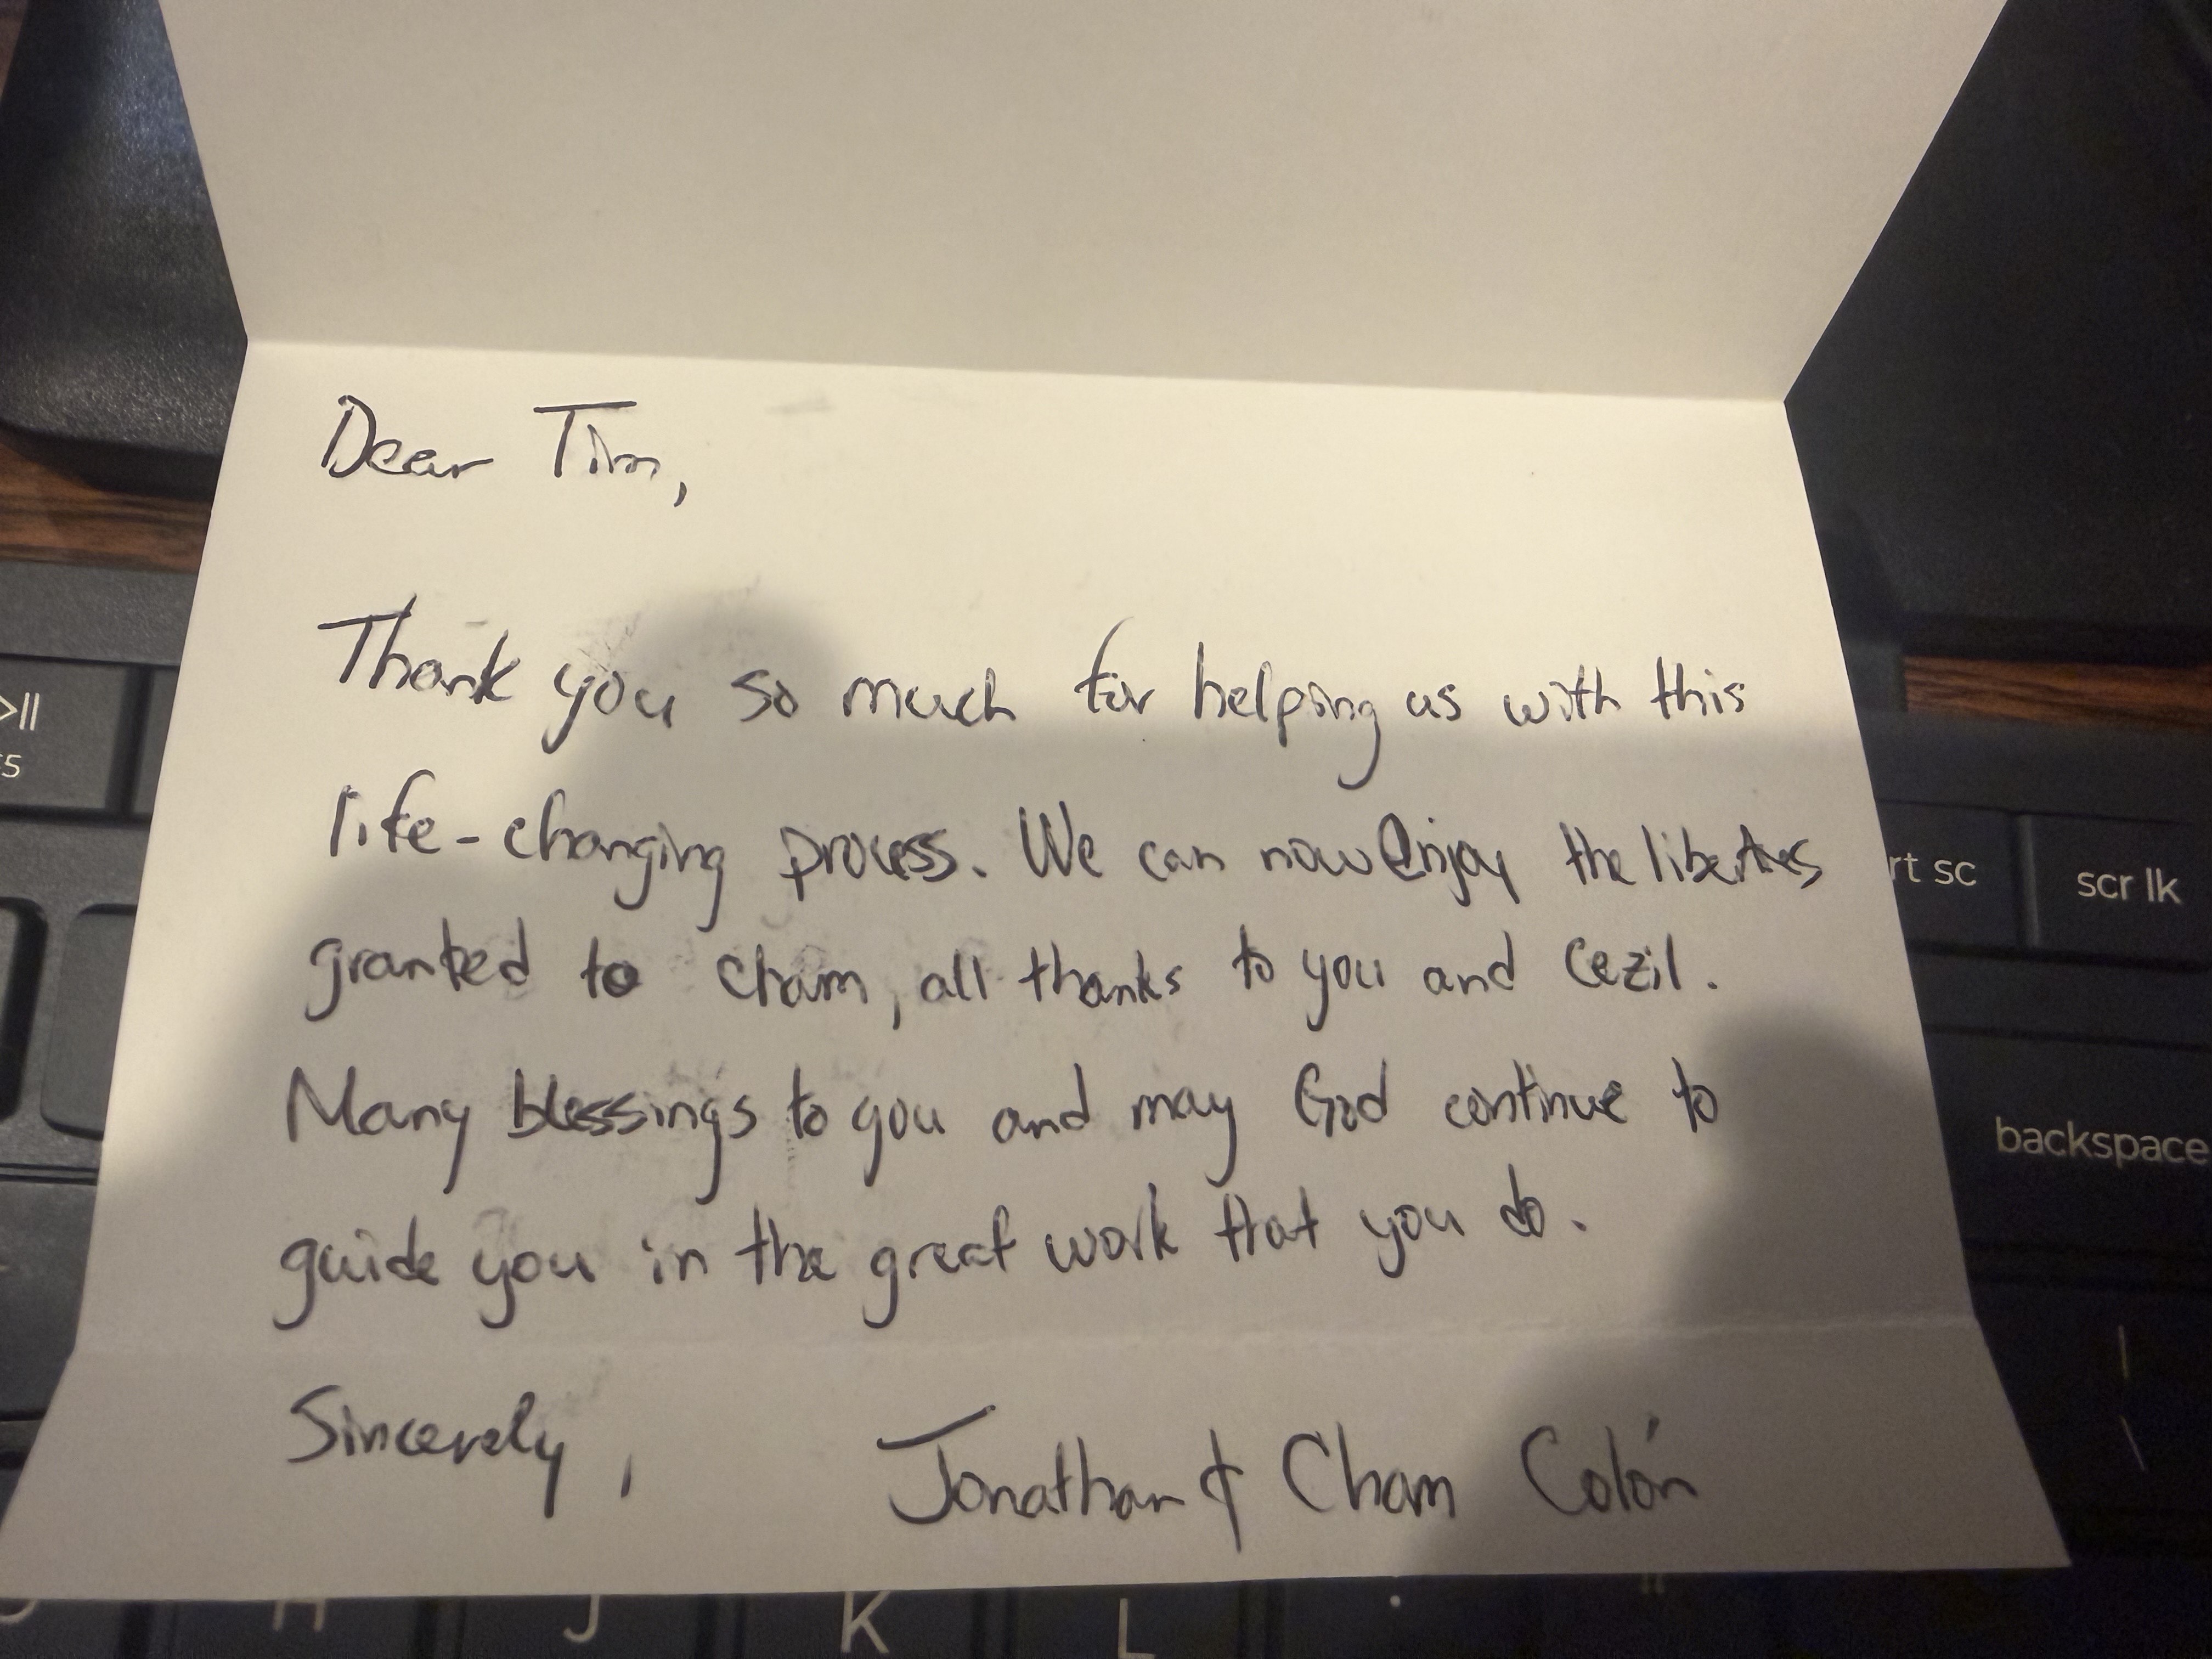 Dear Tim,
Thank you so much for helping us with this
life-changing process. We can now enjoy the liberties
granted to Cham, all thanks to you and Cezil.
Many blessings to you and may God continue to
guide you in the great work that you do.
Sincerely, Jonathan & Cham Colón
rt sc
scr lk
backspace
H
J
K
L